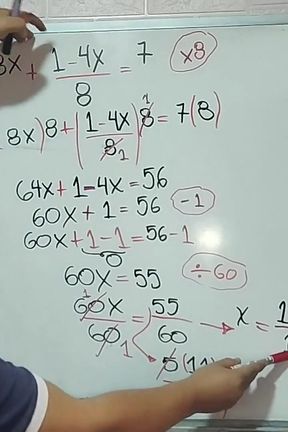 8x + 1-4x/8 = 7 (x8)
8x)8+(1-4x/8 1)8 1 = 7(8)
64x+1-4x=56
60x+1=56 (-1)
60x+1-1=56-1
0
60x=55 (÷60)
60x/60 1 1 = 55/60 → x = 1
5(11)